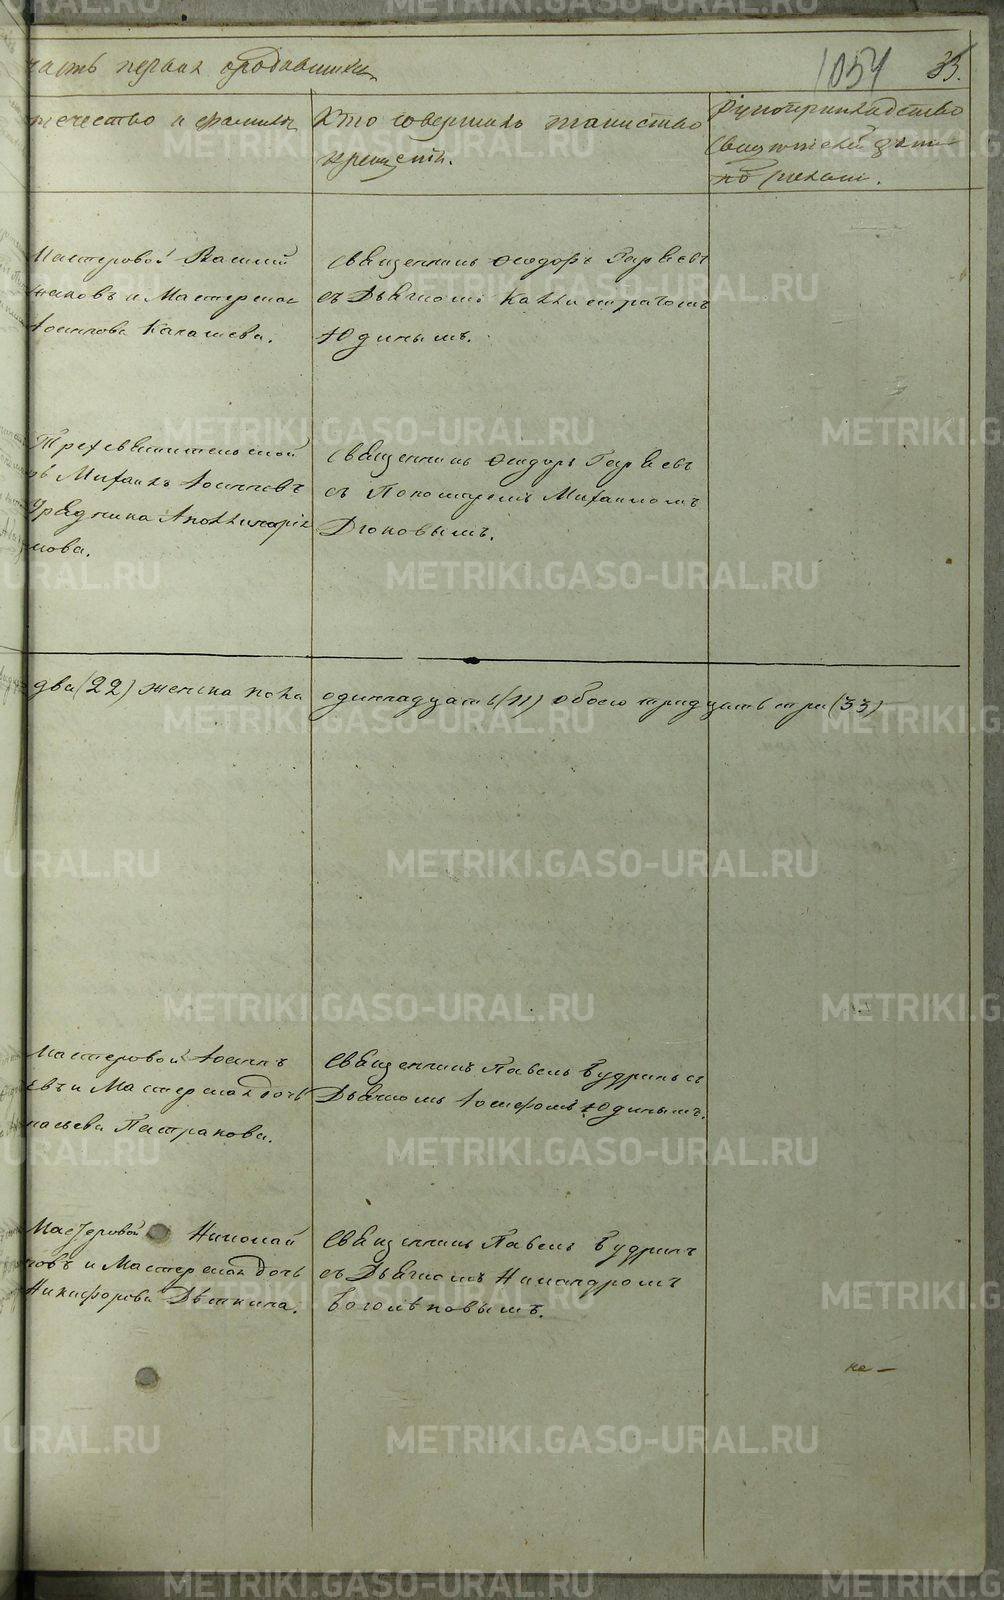 часть первая о родившихся
1054 33.
течество и фамилія
Кто совершалъ таинство
крещенія.
Рукоприкладство
свидѣтелей записи
по желанію.
Мастеровой Василій
и Мастерская
Іосифова Калашева.
Священникъ Ѳеодоръ
съ Дьячкомъ Каллистратомъ
Юдинымъ.
Трехсвятительской
въ Михаилъ
Урядника Аполлинарія
нова.
Священникъ Ѳеодоръ
съ Пономаремъ Михаиломъ
Дюковымъ.
два (22) женска пола одиннадцать (11) обоего тридцать три (33)
Мастеровой Іоаннъ
евъ и Мастерская дочь
Патракова.
Священникъ Павелъ Кудринъ съ
Дьячкомъ Іосифомъ Юдинымъ.
Мастеровой Николай
новъ и Мастерская дочь
Никифорова Дѣткина.
Священникъ Павелъ Кудринъ
съ Дьячкомъ Никандромъ
Боголѣповымъ.
METRIKI.GASO-URAL.RU